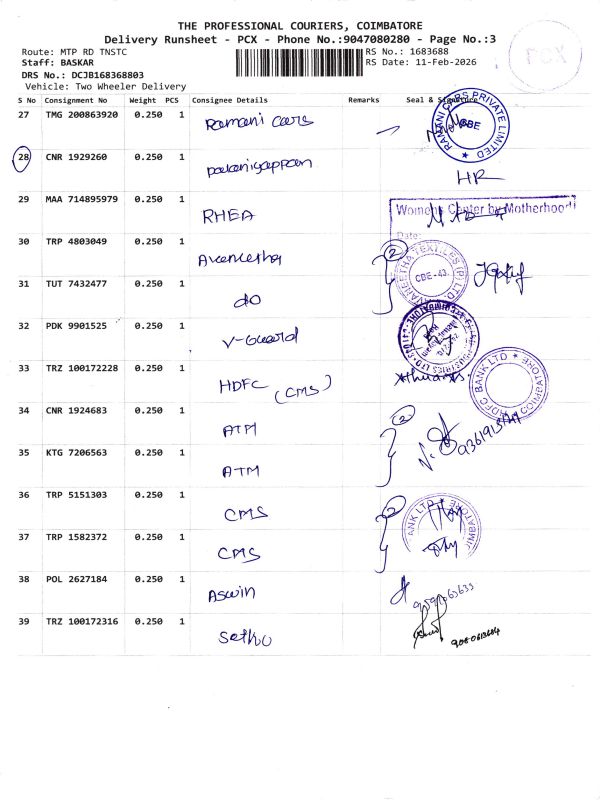 THE PROFESSIONAL COURIERS, COIMBATORE
Delivery Runsheet - PCX - Phone No.:9047080280 - Page No.:3
Route: MTP RD TNSTC
RS No.: 1683688
PCX
Staff: BASKAR
RS Date: 11-Feb-2026
DRS No.: DCJB168368803
Vehicle: Two Wheeler Delivery
S No Consignment No Weight PCS Consignee Details Remarks Seal & Signature
27 TMG 200863920 0.250 1 Ramani cars
RAMANI CARS PRIVATE LIMITED CBE
28 CNR 1929260 0.250 1 palaniyappan
HR
29 MAA 714895979 0.250 1 RHEA
Womens Center by Motherhood
Date:
30 TRP 4803049 0.250 1
2
TEXTILES (P) LTD CBE-43
31 TUT 7432477 0.250 1 do
32 PDK 9901525 0.250 1 V-Guard
33 TRZ 100172228 0.250 1 HDFC (CMS)
HDFC BANK LTD COIMBATORE
34 CNR 1924683 0.250 1 ATM
2
35 KTG 7206563 0.250 1 ATM
36 TRP 5151303 0.250 1 CMS
2
BANK LTD
37 TRP 1582372 0.250 1 CMS
38 POL 2627184 0.250 1 Aswin
39 TRZ 100172316 0.250 1